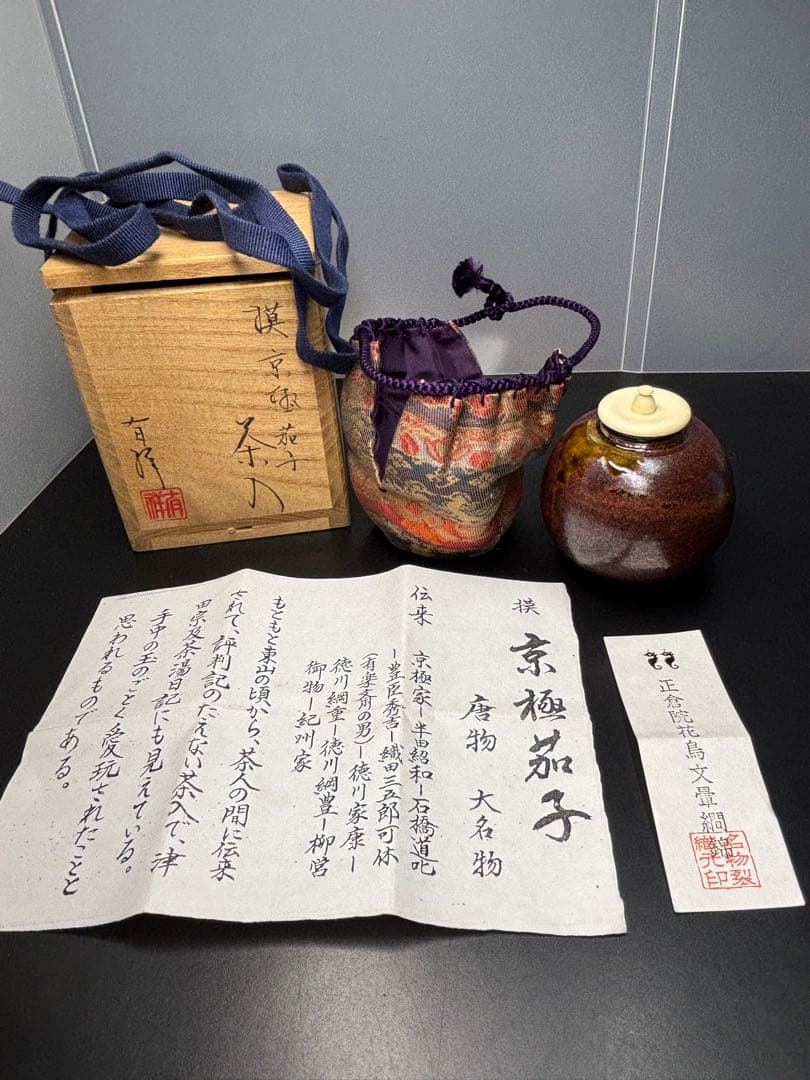 模 京極茄子
茶入
有祥
模
京極茄子
唐物 大名物
伝来 京極家ー半田紹和ー石橋道叱
ー豊臣秀吉ー織田三五郎可休
(有楽斎の男)ー徳川家康ー
徳川綱重ー徳川綱豊ー柳営
御物ー紀州家
もともと東山の頃から、茶人の間に伝来
されて、評判記のたえない茶入で、津
田宗及茶湯日記にも見えている。
手中の玉のごとく愛玩されたことと
思われるものである。
正倉院花鳥文暈繝錦
名物裂
織元印